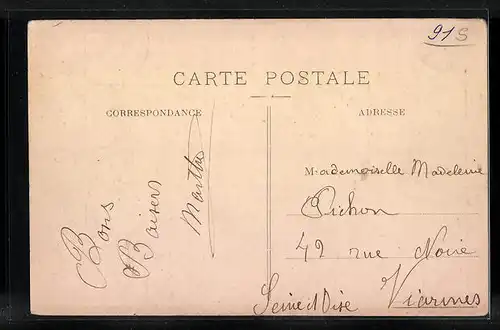 91S
CARTE POSTALE
CORRESPONDANCE
ADRESSE
Bons
Baisers
Marthe
Mademoiselle Madeleine
Pichon
42 rue Noire
Viarmes
Seine et Oise